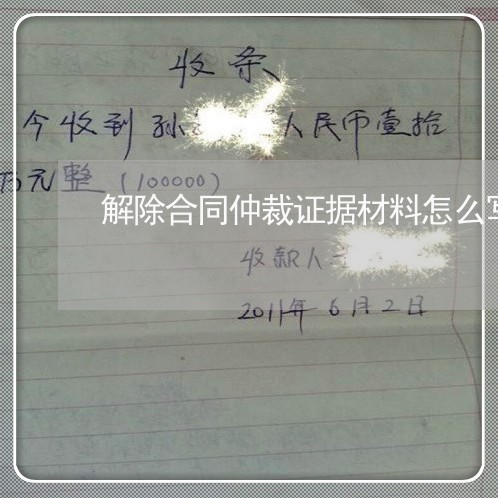 收条
今收到孙人民币壹拾
万元整（100000）
解除合同仲裁证据材料怎么写
收款人
2011年6月2日